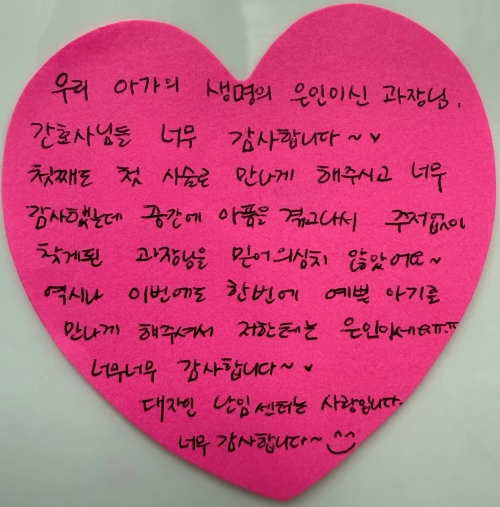 우리 아가의 생명의 은인이신 과장님,
간호사님들 너무 감사합니다~♥
첫째도 첫 시술로 만나게 해주시고 너무
감사했는데 중간에 아픔을 겪고나서 주저없이
찾게된 과장님을 믿어 의심치 않았어요~
역시나 이번에도 한번에 예쁜 아기를
만나게 해주셔서 저한테는 은인이세요ㅠㅠ
너무너무 감사합니다~♥
대자인 난임센터는 사랑입니다.
너무 감사합니다~^^